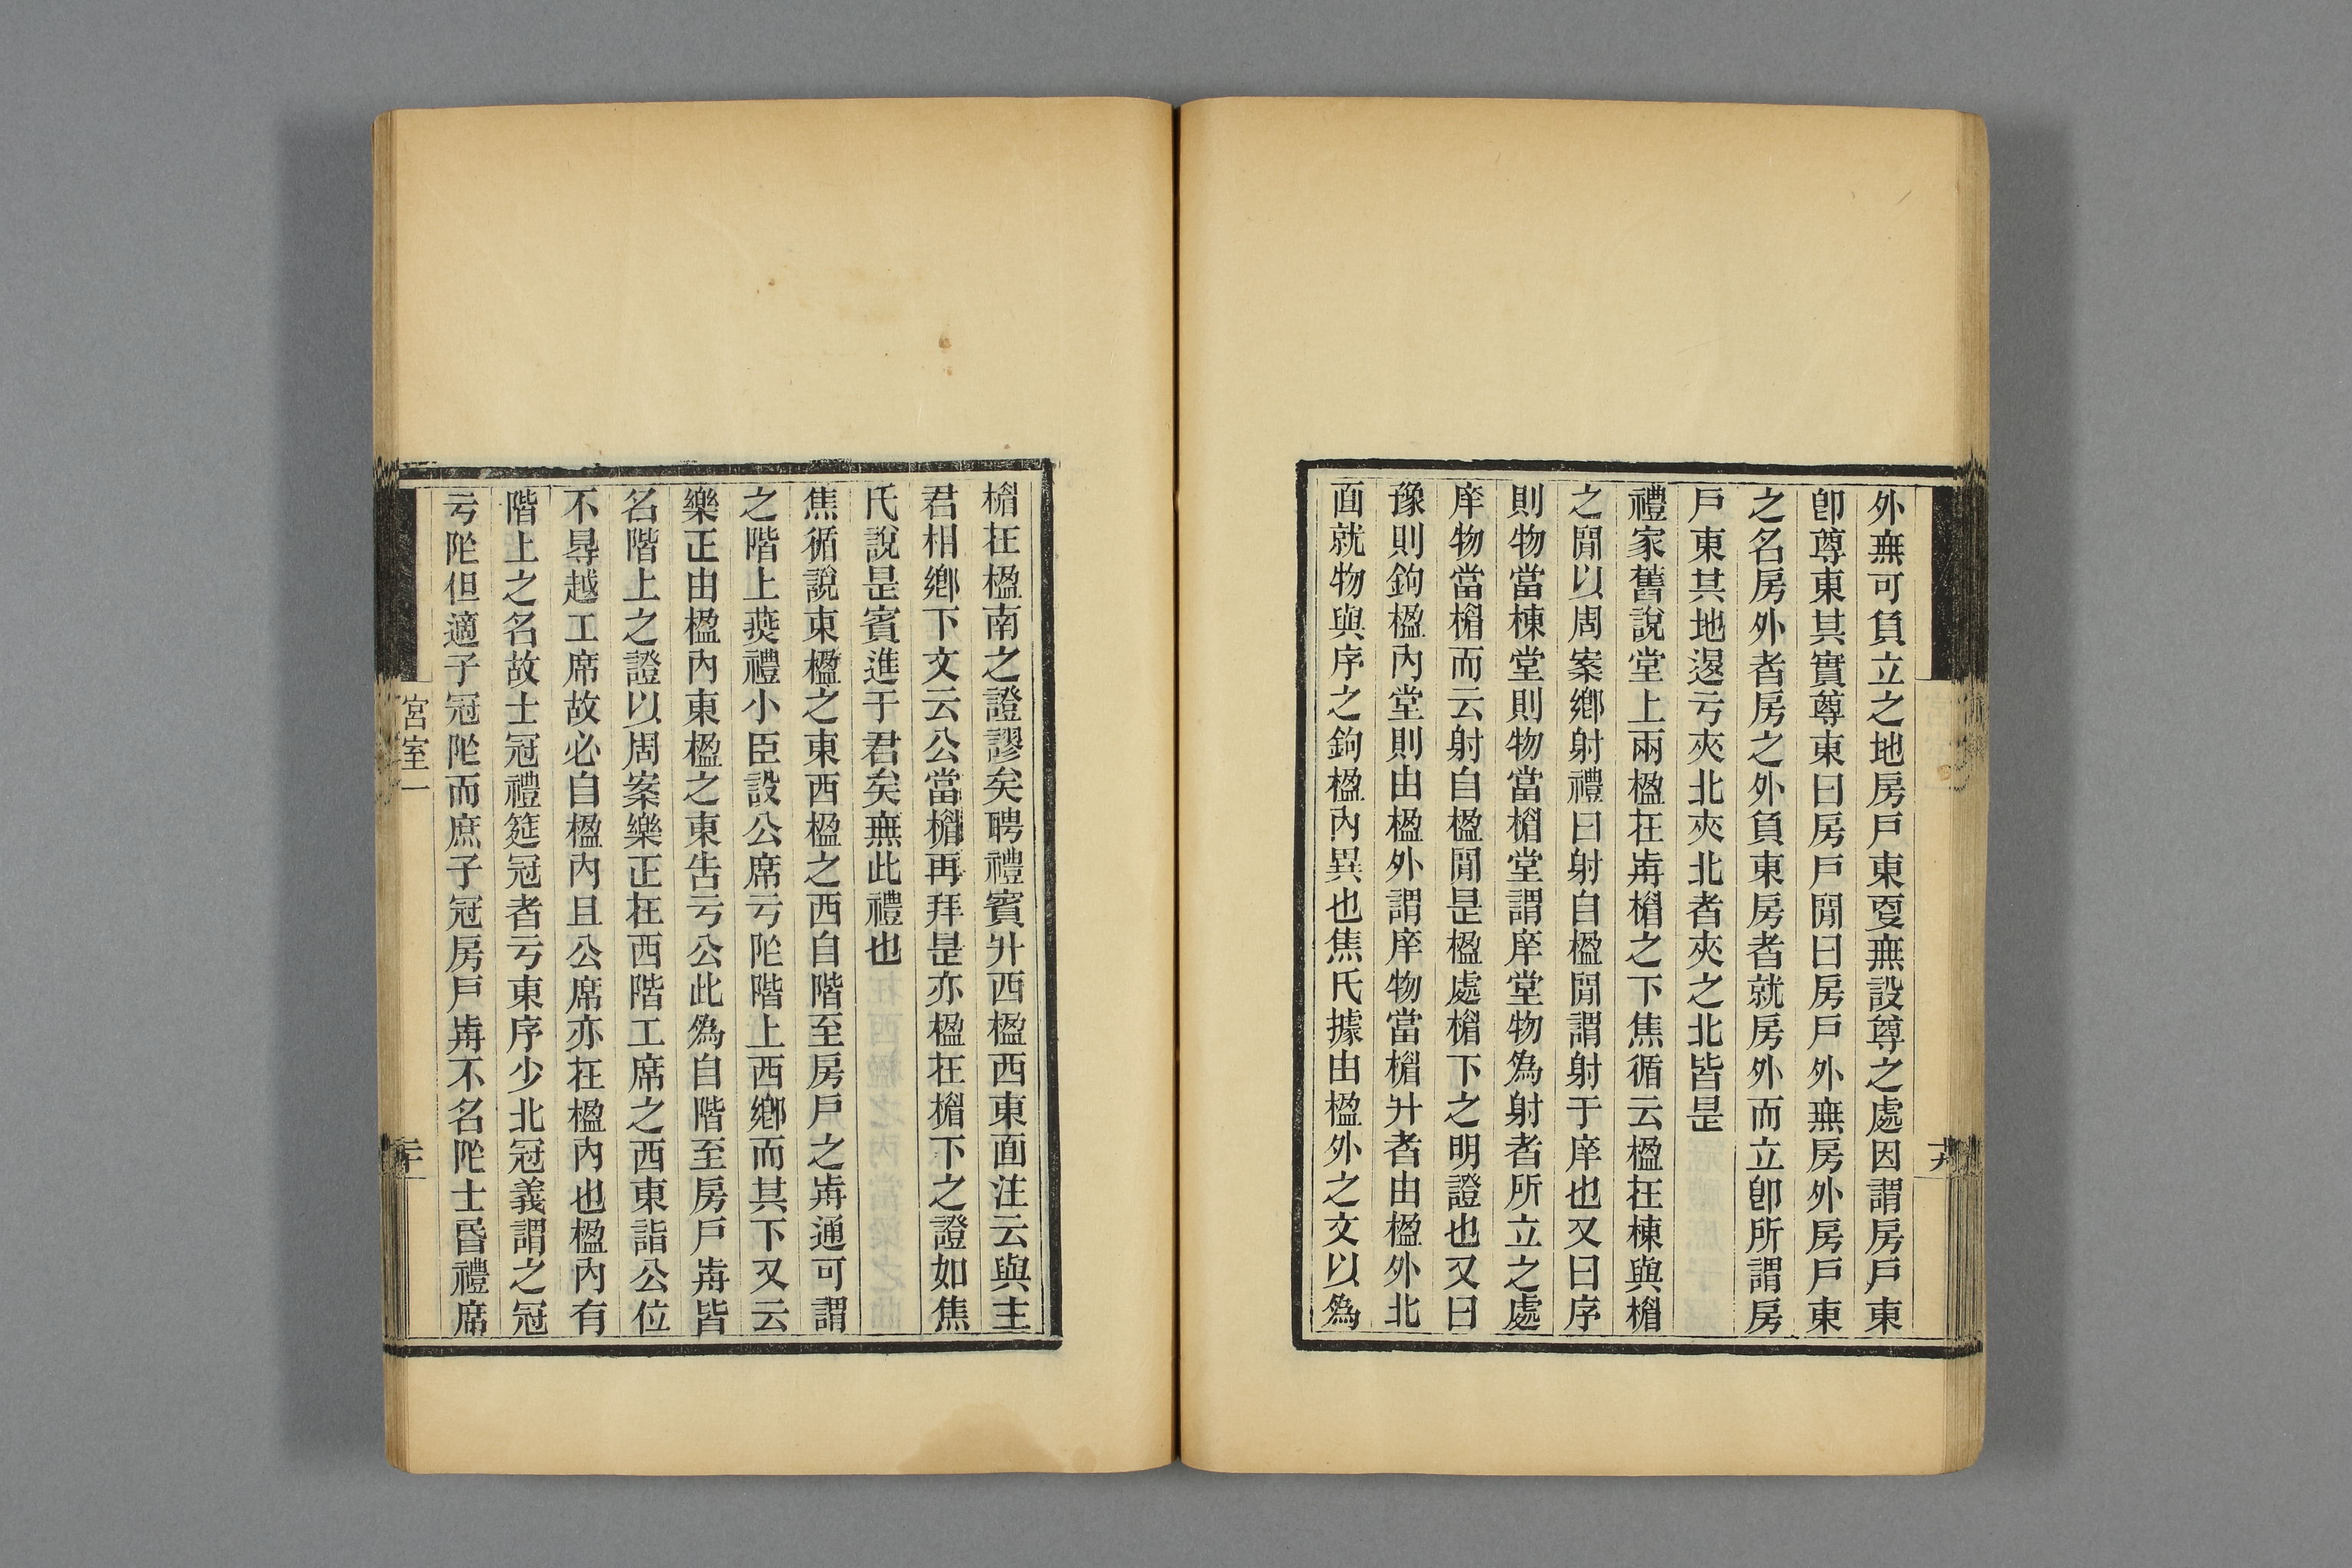 外無可負立之地房戶東㪅無設尊之處因謂房戶東
卽尊東其實尊東曰房戶閒曰房戶外無房外房戶東
之名房外者房之外負東房者就房外而立卽所謂房
戶東其地逿亏夾北夾北者夾之北皆是
禮家舊說堂上兩楹在歬楣之下焦循云楹在棟與楣
之閒以周案鄉射禮曰射自楹閒謂射于庠也又曰序
則物當棟堂則物當楣堂謂庠堂物為射者所立之處
庠物當楣而云射自楹閒是楹處楣下之明證也又曰
豫則鉤楹內堂則由楹外謂庠物當楣升者由楹外北
面就物與序之鉤楹內異也焦氏據由楹外之文以為
十九
楣在楹南之證謬矣聘禮賓升西楹西東面注云與主
君相鄉下文云公當楣再拜是亦楹在楣下之證如焦
氏說是賓進于君矣無此禮也
焦循說東楹之東西楹之西自階至房戶之歬通可謂
之階上燕禮小臣設公席亏阼階上西鄉而其下又云
樂正由楹內東楹之東告亏公此為自階至房戶歬皆
名階上之證以周案樂正在西階工席之西東詣公位
不㝵越工席故必自楹內且公席亦在楹內也楹內有
階上之名故士冠禮筵冠者亏東序少北冠義謂之冠
亏阼但適子冠阼而庶子冠房戶歬不名阼士昏禮席
宮室一
二十